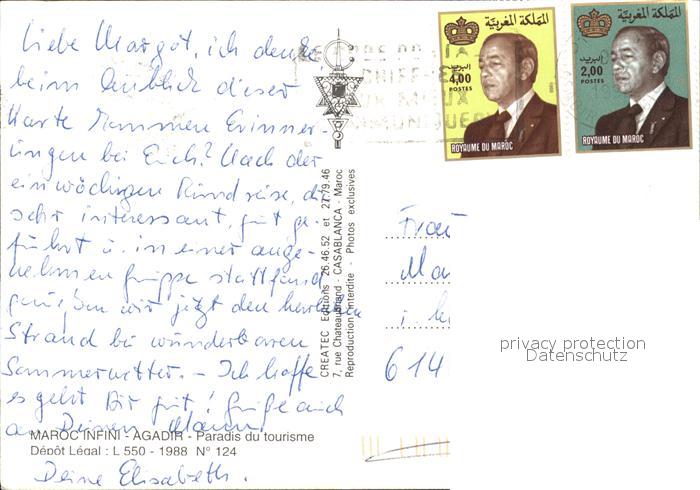 Liebe Margot, ich denke,
beim Anblick dieser
Karte kommen Erinner-
ungen bei Euch? Nach der
einwöchigen Rundreise, die
sehr interessant, gut ge-
führt u. in einer ange-
nehmen Gruppe stattfand
genießen wir jetzt den herrlichen
Strand bei wunderbarem
Sommerwetter. - Ich hoffe
es geht Dir gut! Grüße auch
an Deinen Mann.
Deine Elisabeth.
MAROC INFINI - AGADIR - Paradis du tourisme
Dépôt Légal : L 550 - 1988 N° 124
CREATEC Editions 26.46.52 et 27.79.46
7, rue Chateaubriand - CASABLANCA - Maroc
Reproduction interdite - Photos exclusives
المملكة المغربية
البريد
4,00
POSTES
ROYAUME DU MAROC
المملكة المغربية
البريد
2,00
POSTES
ROYAUME DU MAROC
Frau
Ma
i
614
privacy protection
Datenschutz